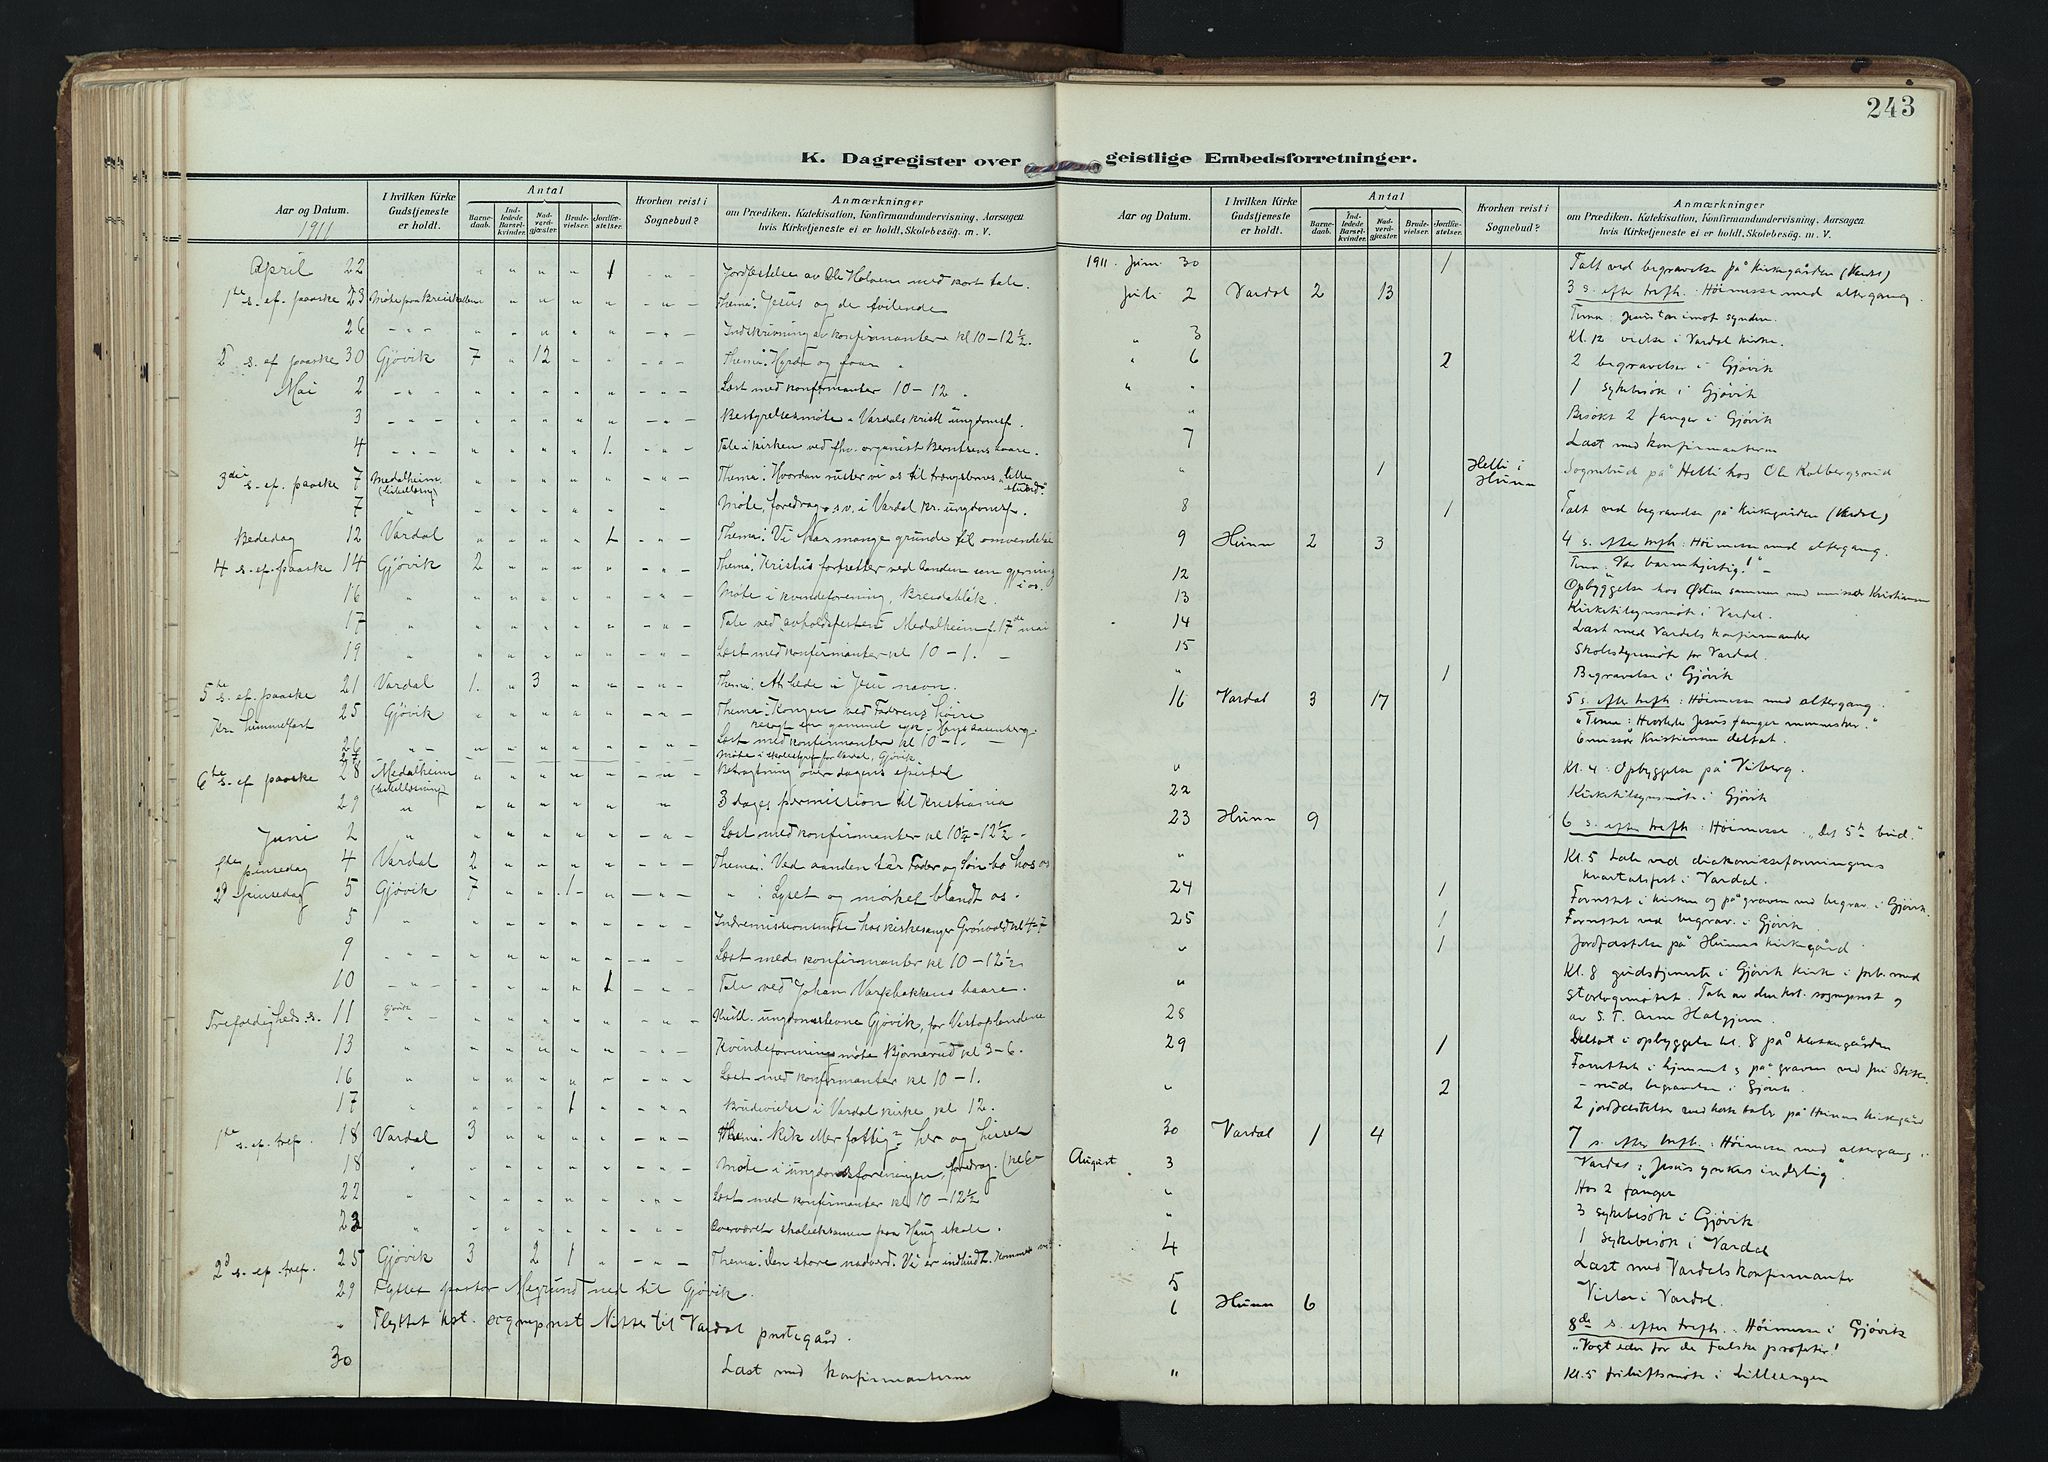 243
K. Dagregister over geistlige Embedsforretninger.
Aar og Datum. I hvilken Kirke Gudstjeneste er holdt. Antal Barnedaab. Indledede Barselkvinder. Nadverdgjæster. Brudevielser. Jordfæstelser. Hvorhen reist i Sognebud? Anmærkninger om Prædiken, Katekisation, Konfirmandundervisning, Aarsagen hvis Kirketjeneste ei er holdt, Skolebesøg, m. V.
1911
April 22 1 Jordfæstelse av Ole Holven med kort tale.
1ste s. ef. paaske 23 Thema: Jesus og de tvilende
26 Indskrivning av konfirmanter kl 10-12½.
2 s. ef paaske 30 Gjøvik 7 12 Thema: Hyrde og faar
Mai 2 Læst med konfirmanter 10-12.
3 Bestyrelsesmøte i Vardals kristl. ungdomsf.
4 1. Tale i kirken ved fhv. organist Berntsens baare.
3die s. ef. paaske 7 Medalheim Thema: Hvordan ruster vi os til trængslernes "lille stund".
7 Møte, foredrag o.s.v. i Vardal kr. ungdomsf.
Bededag 12 Vardal 1 Thema: Vi har mange grunde til omvendelse
4 s. ef. paaske 14 Gjøvik 2 Thema: Kristus fortsetter ved aanden sin gjerning i os.
16 Møte i kvindeforening, Breidablik.
17 Tale ved avholdsfesten Medalheim f. 17de mai
19 Læst med konfirmanter kl 10-1.
5te s. ef. paaske 21 Vardal 1. 3 Thema: At bede i Jesu navn.
Kr. himmelfart 25 Gjøvik Thema: Kongen ved Faderens høire
26 Læst med konfirmanter kl 10-1.
27 Møte i skolestyret for Vardal, Gjøvik.
6te s. ef paaske 28 Medalheim Betragtning over dagens epistel
29 3 dages permission til Kristiania
Juni 2 Læst med konfirmanter kl 10½-12½.
1ste pinsedag 4 Vardal 2 Thema: Ved aanden tar Fader og Søn bo hos os
2d pinsedag 5 Gjøvik 7 1 " : Lyset og mørket blandt os.
5 Indremissionsmøte hos kirkesanger Grönvold kl 4-7
9 Læst med konfirmanter kl 10-12½
10 1 Tale ved Johan Varpbakkens baare.
Trefoldigheds s. 11 Gjøvik Kristl. ungdomsstevne Gjøvik, for Vestoplandene
13 Kvindeforeningsmøte Bjørnerud kl 3-6.
16 Læst med konfirmanter kl 10-1.
17 1 Brudevielse i Vardal kirke kl 12.
1ste s. ef. tref. 18 Vardal 3 Thema: Rik eller fattig? her og hisset
18 Møte i ungdomsforeningen, foredrag.
22 Læst med konfirmanter kl 10-12½
23 Overværet skoleeksamen paa Haug skole.
2d s. ef. tref. 25 Gjøvik 3 2 1 Thema: Den store nadverd. Vi er indbudt. Kommer vi?
29 Flyttet pastor ned til Gjøvik.
" Flyttet kst. sogneprest Nitter til Vardal prestegård.
30 Læst med konfirmanterne
Aar og Datum. I hvilken Kirke Gudstjeneste er holdt. Antal Barnedaab. Indledede Barselkvinder. Nadverdgjæster. Brudevielser. Jordfæstelser. Hvorhen reist i Sognebud? Anmærkninger om Prædiken, Katekisation, Konfirmandundervisning, Aarsagen hvis Kirketjeneste ei er holdt, Skolebesøg, m. V.
1911. Juni 30 1 Talt ved begravelse på kirkegården (Vardal)
Juli 2 Vardal 2 13 3 s. efter trefh.: Höimesse med altergang.
Tema: Jesus tar imot syndere.
" 3 Kl. 12 vielse i Vardal kirke.
" 6 2 2 begravelser i Gjövik
" " 1 sykebesök i Gjövik
" Besökt 2 fanger i Gjövik
7 Læst med konfirmanterne
" 1 Helli i Hunn Sognebud på Helli hos Ole Kolbergsrud
8 1 Talt ved begravelse på kirkegården (Vardal)
9 Hunn 2 3 4 s. efter trefh.: Höimesse med altergang.
Tema: "Vær barmhjertig!"
12 Opbyggelse hos Østen sammen med emissær Kristiansen
13 Kirketilsynsmöte i Vardal.
14 Læst med Vardals konfirmander
15 Skolestyremöte for Vardal.
" 1 Begravelse i Gjövik
16 Vardal 3 17 5 s. efter trefh.: Höimesse med altergang.
"Tema: Hvorledes Jesus fanger mennesker."
Emissær Kristiansen deltat.
" Kl. 4: Opbyggelse på Viberg.
22 Kirketilsynsmöte i Gjövik
23 Hunn 9 6 s. efter trefh.: Höimesse. "Det 5te bud."
" Kl. 5 tale ved diakonisseforeningens kvartalsfest i Vardal.
24 1 Forrettet i kirken og på graven ved begrav. i Gjövik.
25 1 Forrettet ved begrav. i Gjövik.
" 1 Jordfæstelse på Hunns kirkegård.
" Kl. 8 gudstjeneste i Gjövik kirke i forb. med
storlogemötet. Tale av den kst. sogneprest og
av S. T. Arne Halgjem.
28 Deltat i opbyggelse kl. 8 på
29 1 Forrettet i hjemmet og på graven ved
ruds begravelse i Gjövik.
" 2 2 jordfæstelser med korte taler på Hunns kirkegård
30 Vardal 1 4 7 s. efter trefh.: Höimesse med altergang i
Vardal: "Jesus ynkes inderlig".
August 3 Hos 2 fanger
" 3 sykebesök i Gjövik
" 1 sykebesök i Vardal
4 Læst med Vardals konfirmanter
5 Vielse i Vardal.
6 Hunn 6 8de s. efter trefh.: Höimesse i Gjövik
"Vogt eder for de falske profeter!"
" Kl. 5 friluftsmöte i Lilleengen